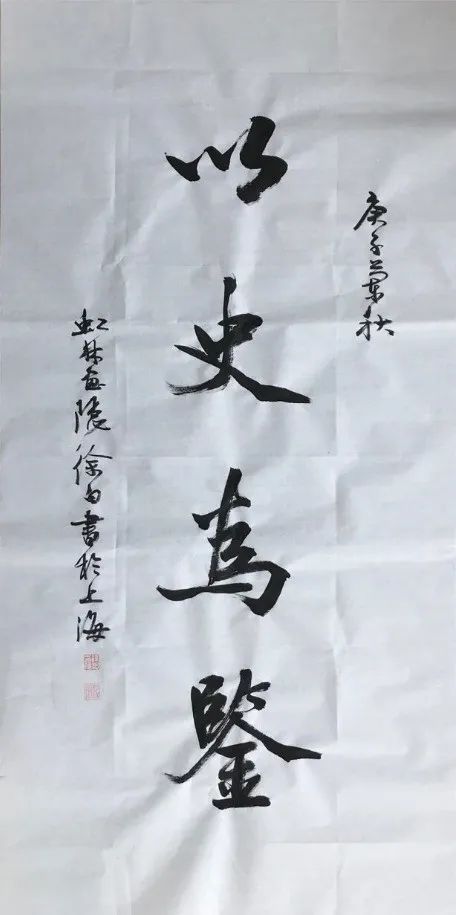 庚子兰秋
以史為鑒
虹林畫隱徐白書於上海